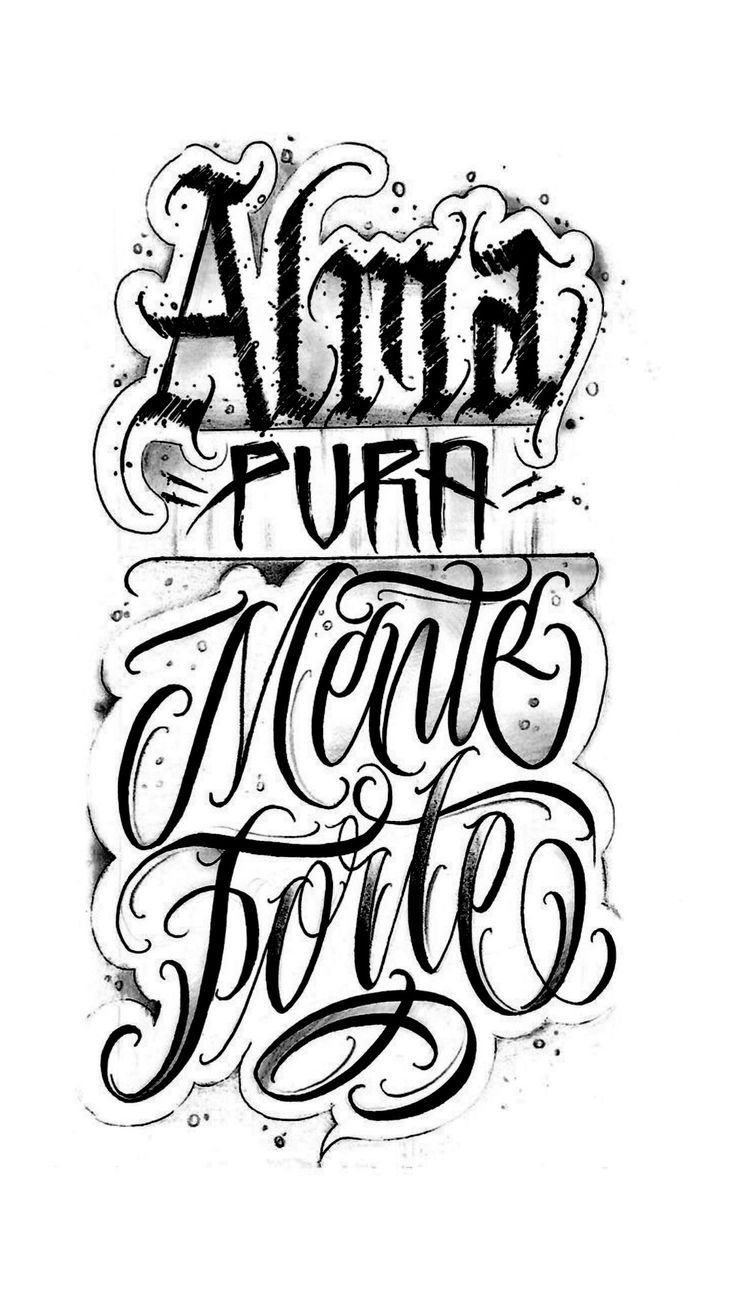 Alma
PURA
Mente
Forte